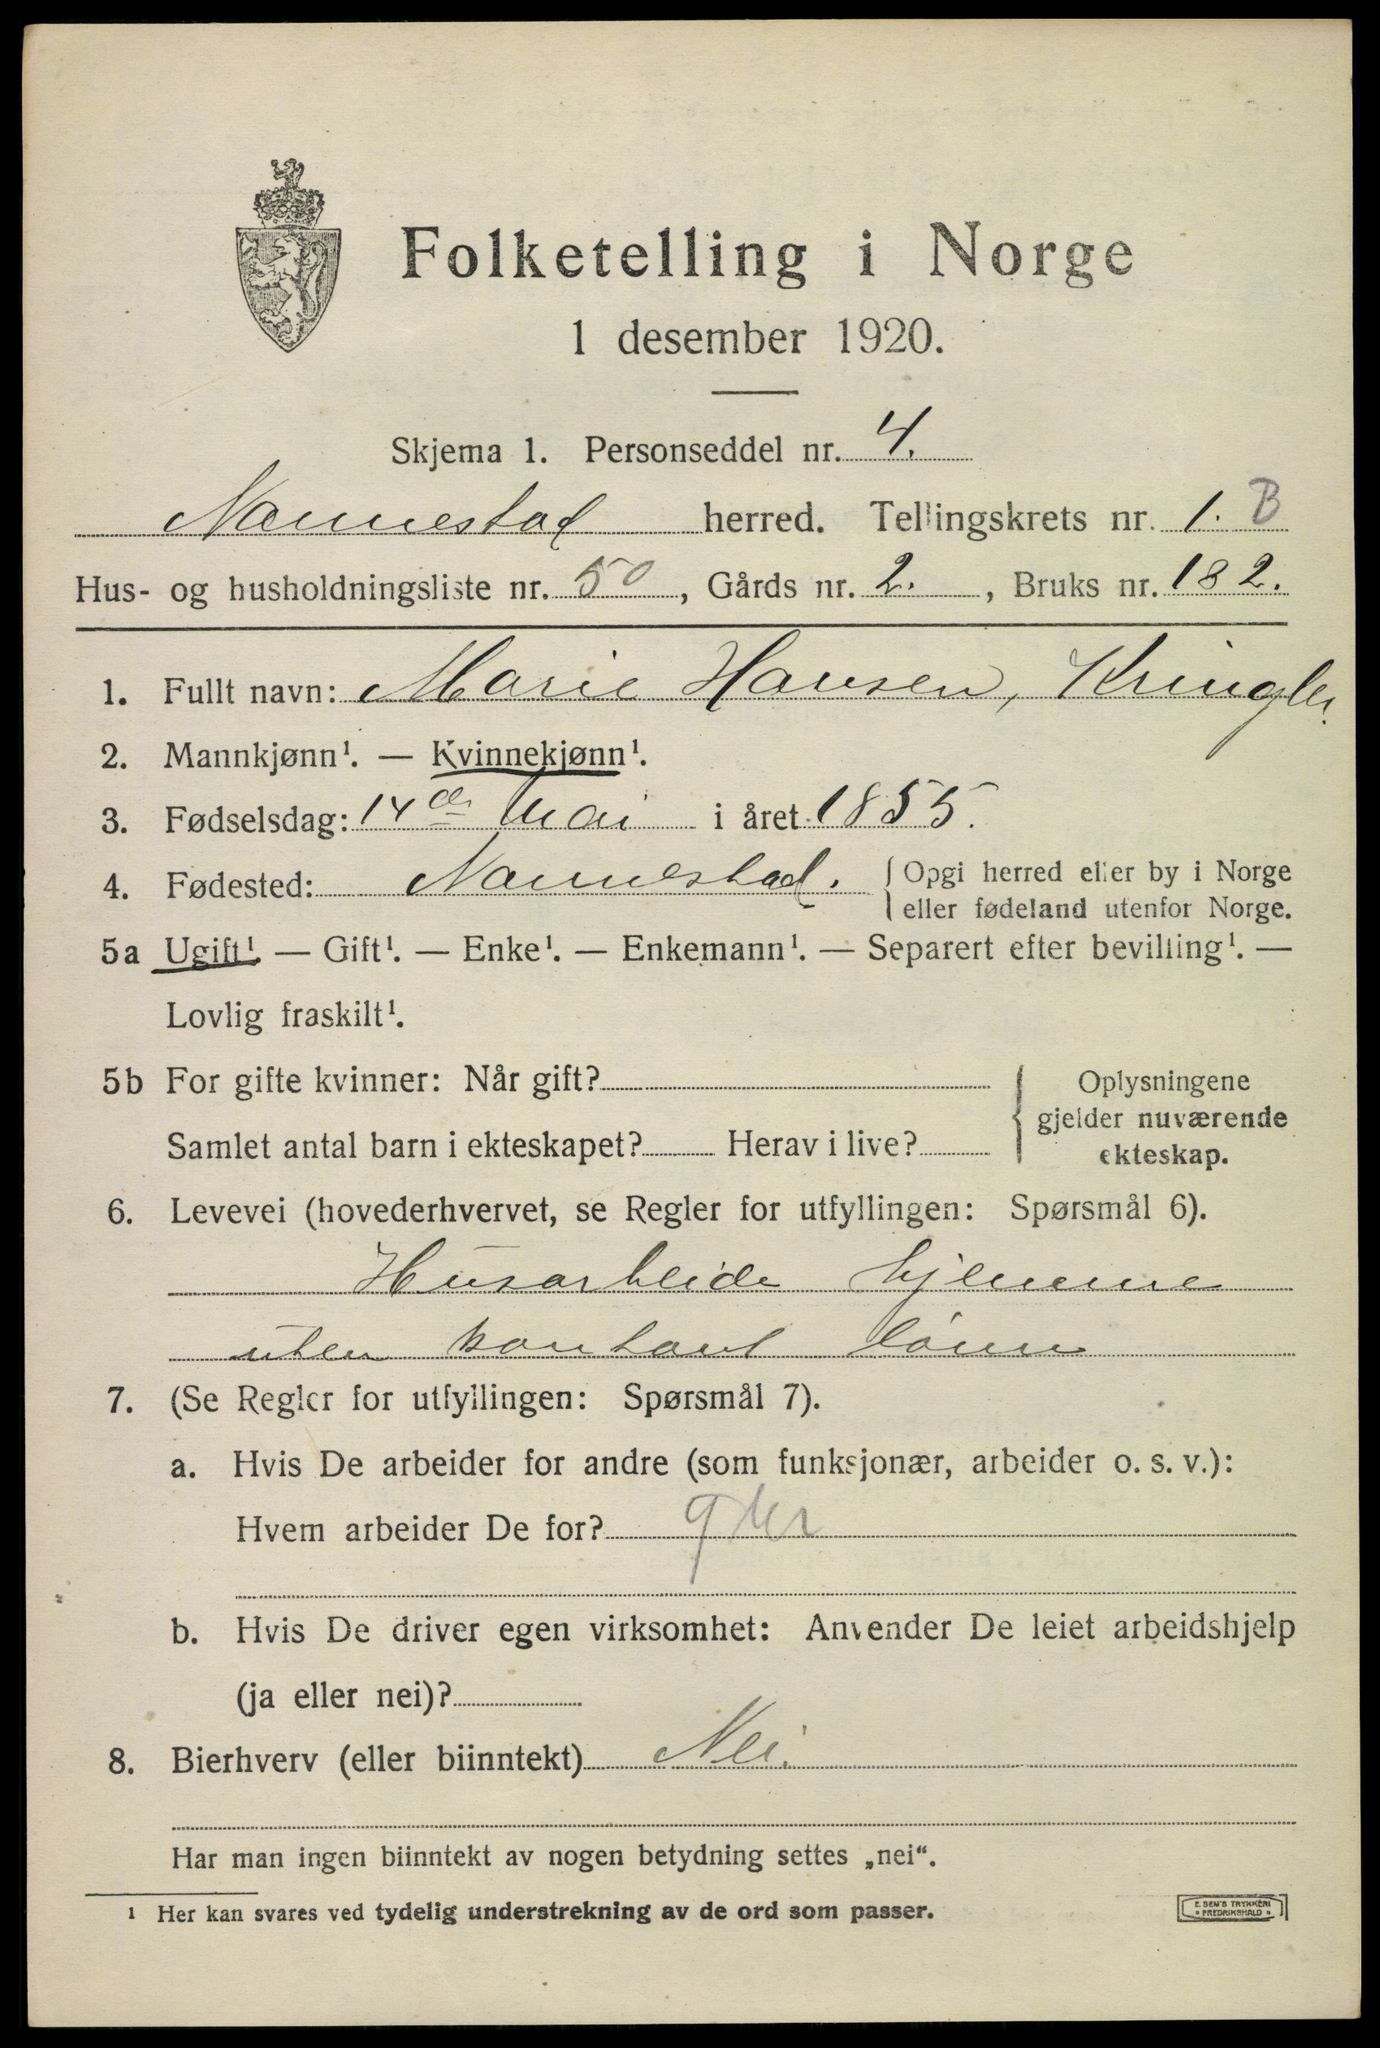 Folketelling i Norge
1 desember 1920.
Skjema 1. Personseddel nr. 4.
Nannestad herred. Tellingskrets nr. 1. B
Hus- og husholdningsliste nr. 50, Gårds nr. 2., Bruks nr. 182.
1. Fullt navn: Marie Hansen, Kringler.
2. Mannkjønn¹. — Kvinnekjønn¹.
3. Fødselsdag: 14de Mai i året 1855.
4. Fødested: Nannestad. { Opgi herred eller by i Norge
eller fødeland utenfor Norge.
5a Ugift¹. — Gift¹. — Enke¹. — Enkemann¹. — Separert efter bevilling¹. —
Lovlig fraskilt¹.
5b For gifte kvinner: Når gift?
Samlet antal barn i ekteskapet? Herav i live?
{ Oplysningene
gjelder nuværende
ekteskap.
6. Levevei (hovederhvervet, se Regler for utfyllingen: Spørsmål 6).
Husarbeide hjemme
uten kontant lønn
7. (Se Regler for utfyllingen: Spørsmål 7).
a. Hvis De arbeider for andre (som funksjonær, arbeider o. s. v.):
Hvem arbeider De for?
b. Hvis De driver egen virksomhet: Anvender De leiet arbeidshjelp
(ja eller nei)?
8. Bierhverv (eller biinntekt) Nei.
Har man ingen biinntekt av nogen betydning settes „nei“.
¹ Her kan svares ved tydelig understrekning av de ord som passer.
E. SEM'S TRYKKERI
* FREDRIKSHALD *